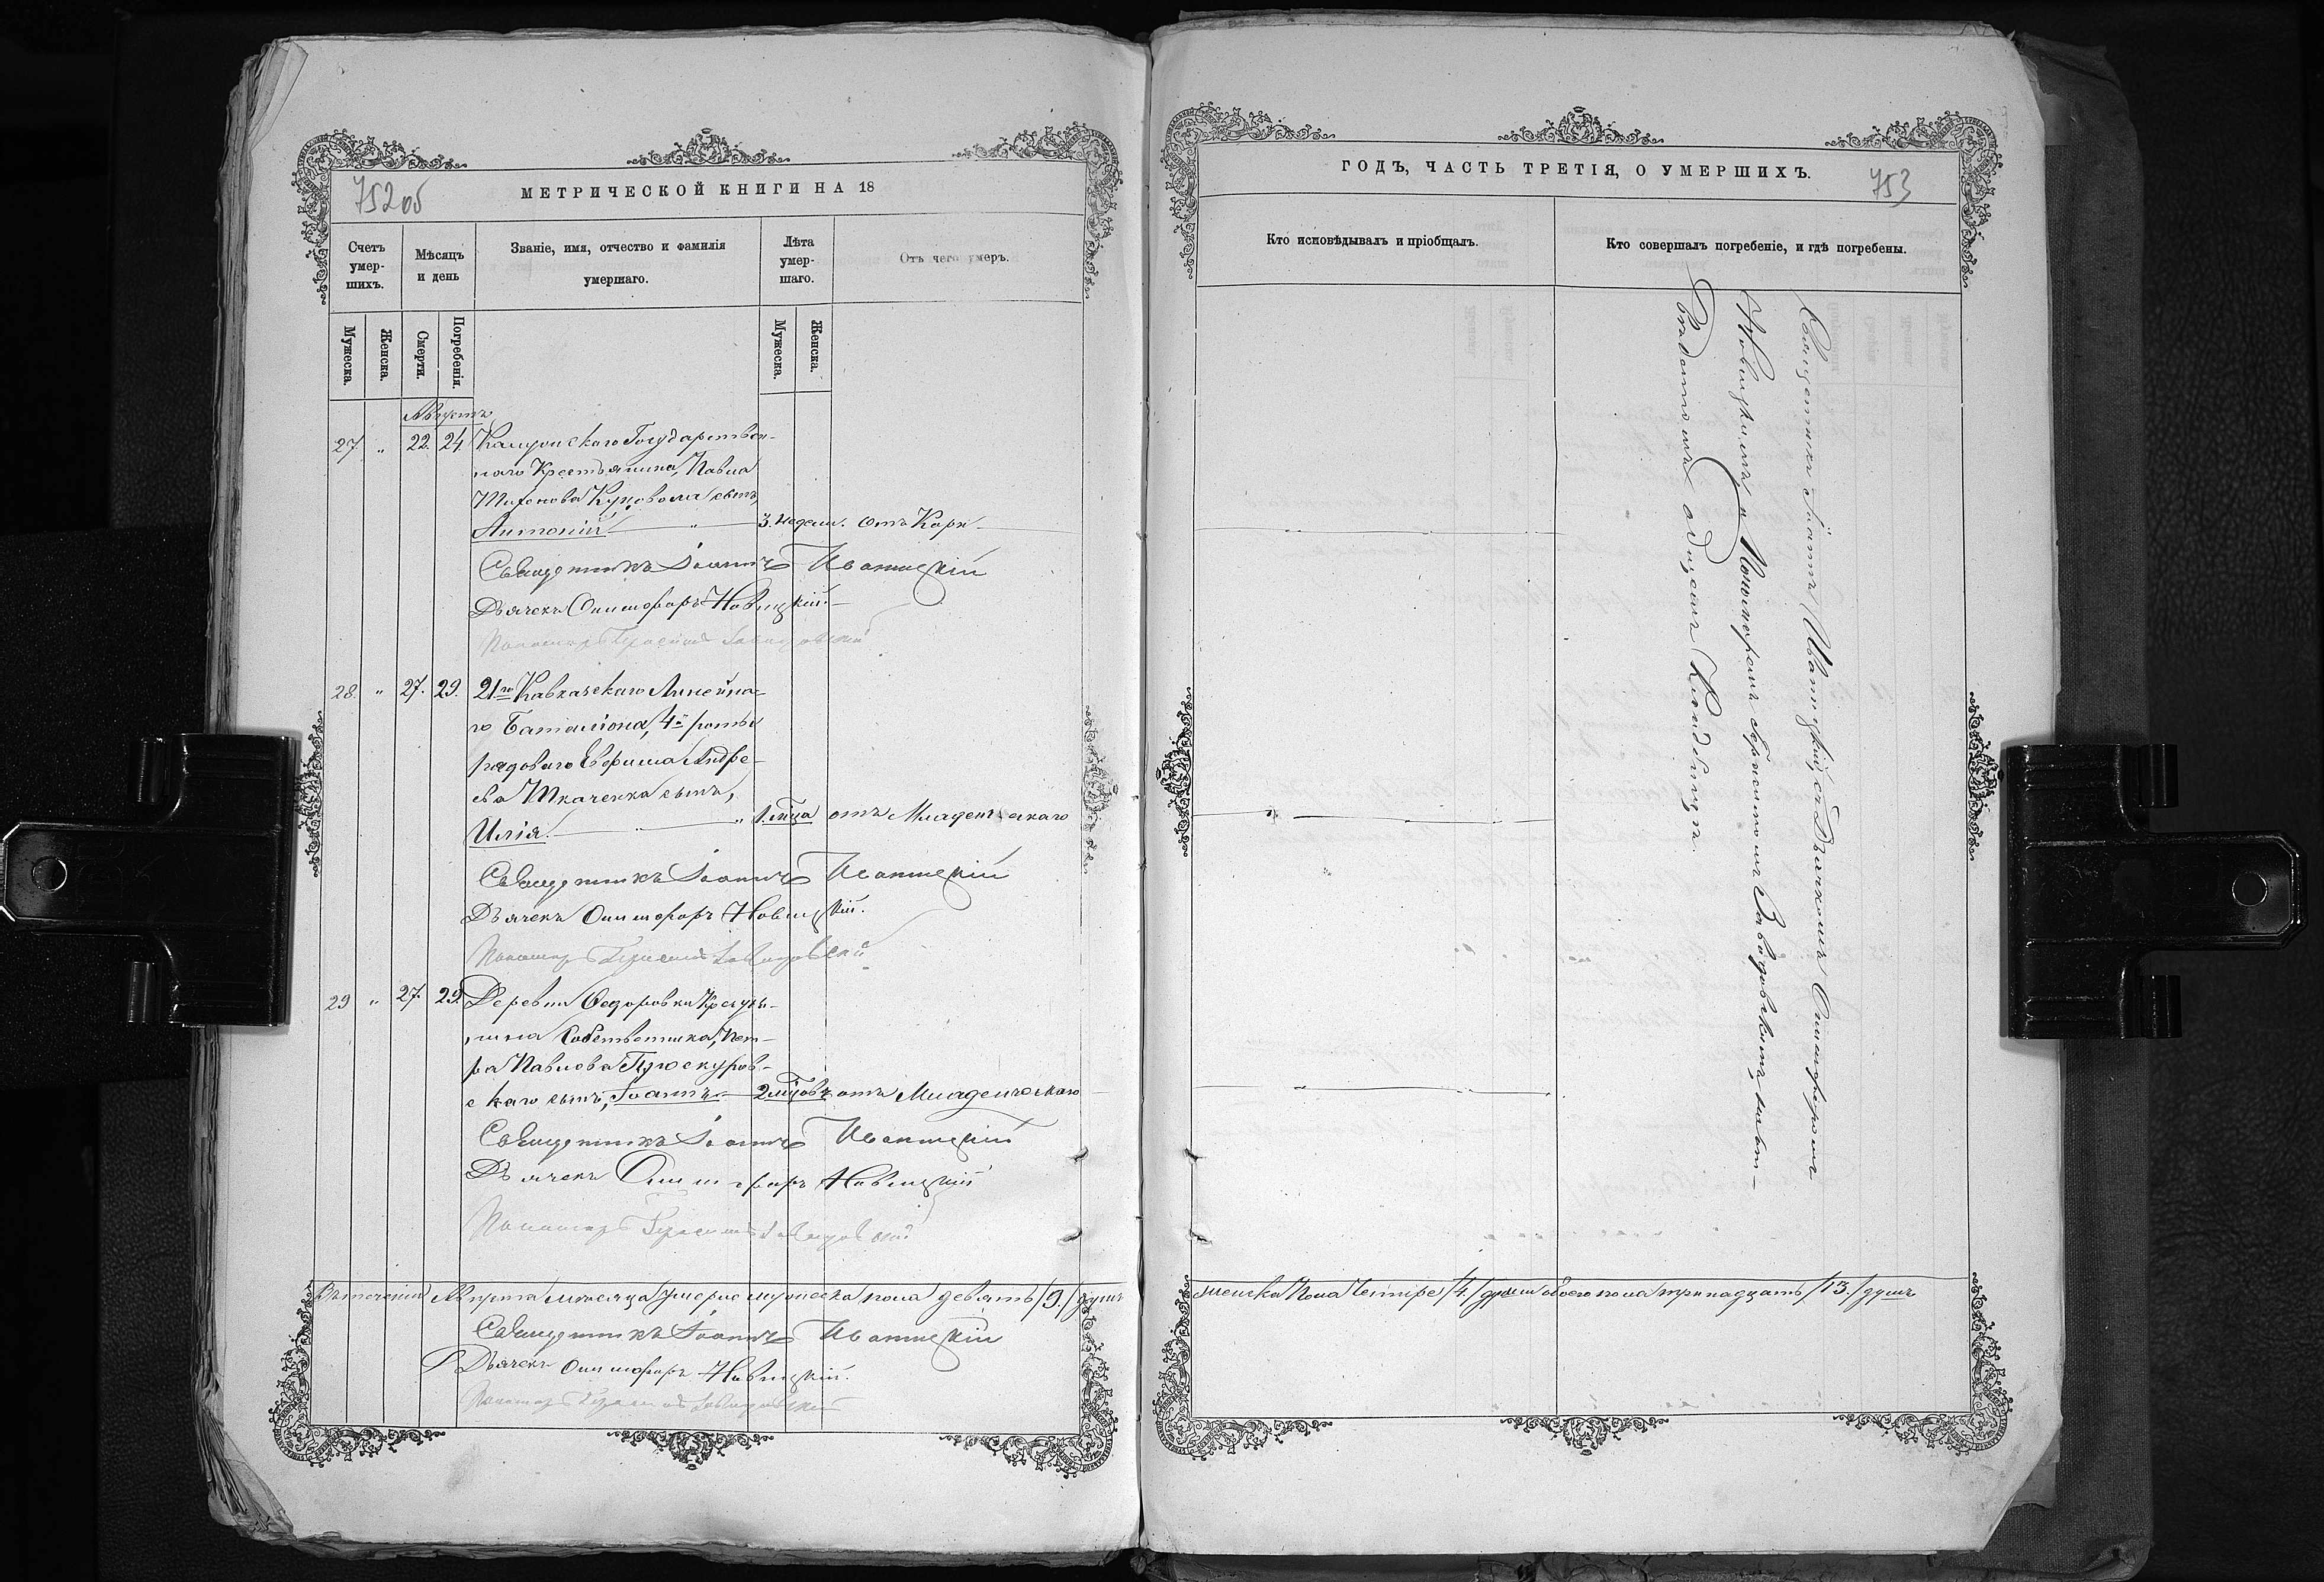 752 об
МЕТРИЧЕСКОЙ КНИГИ НА 18
Счетъ умер-шихъ.
Мѣсяцъ и день
Званіе, имя, отчество и фамилія умершаго.
Лѣта умер-шаго.
Отъ чего умеръ.
Мужеска.
Женска.
Смерти.
Погребенія.
Мужеска.
Женска.
Августъ
27 " 22. 24. Государствен-
наго Крестьянина, Павла
сынъ,
Антоній " 3. недели. отъ Кори
Священникъ Іоаннъ Иваницкій
Дьячекъ Онисифоръ Новицкій.
Пономарь Герасимъ Завадовскій
28. " 27. 29. 21го Кавказскаго Линейна-
го Баталіона, 4й роты
рядоваго Ефима Андре-
ева Ткаченка сынъ,
Илія. " " 1. мца отъ Младенческаго
Священникъ Іоаннъ Иваницкій
Дьячекъ Онисифоръ Новицкій.
Пономарь Герасимъ Завадовскій
29 " 27. 29. Деревни Федоровки Крестья-
нина Собственника, Пет-
ра Павлова Проскуров-
скаго сынъ, Іоаннъ 2 мцовъ отъ Младенческаго
Священникъ Іоаннъ Иваницкій
Дьячекъ Онисифоръ Новицкій
Пономарь Герасимъ Завадовскій
Въ теченіи Августа месяца умерло мужеска пола девять /9./ душъ
Священникъ Іоаннъ Иваницкій
Дьячекъ Онисифоръ Новицкій.
Пономарь Герасимъ Завадовскій
ГОДЪ, ЧАСТЬ ТРЕТІЯ, О УМЕРШИХЪ.
753
Кто исповѣдывалъ и пріобщалъ.
Кто совершалъ погребеніе, и гдѣ погребены.
Священникъ Іоаннъ Иваницкій, съ Дьячкомъ Онисифоромъ
Новицкимъ и Пономаремъ Герасимомъ Завадовскимъ, на
общемъ Кладбищѣ.
женска пола четыре /4/ души обоего пола тринадцать /13./ душъ